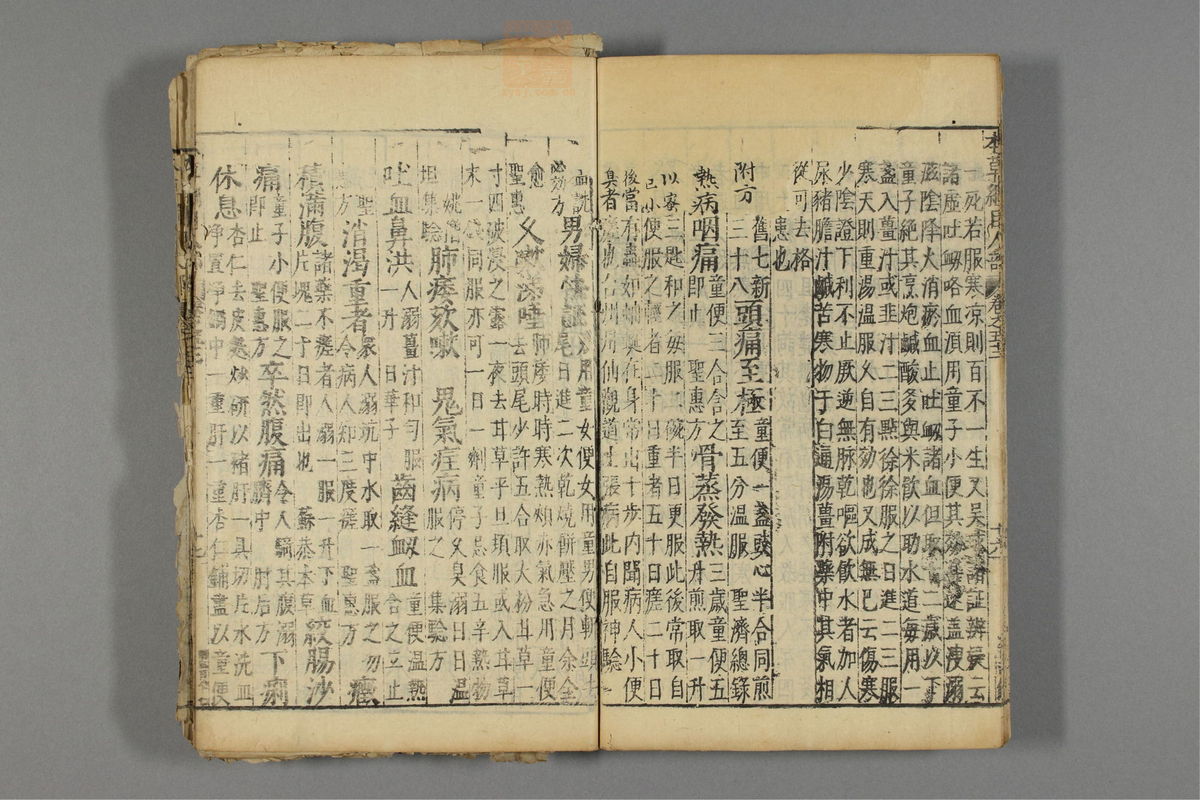 死若服寒凉則百不一生又吳球諸証辨疑云
諸虛吐衂咯血須用童子小便其效甚速盖溲溺
滋陰降火消瘀血止吐衂諸血但取十二歲以下
童子絶其烹炮鹹酸多與米飲以助水道每用一
盞入薑汁或韭汁二三點徐徐服之日進二三服
寒天則重湯温服久自有効也又成無已云傷寒
少陰證下利不止厥逆無脉乾嘔欲飲水者加人
尿豬膽汁鹹苦寒物于白通湯薑附藥中其氣相
從可去格
患也
附方
舊七新
三十八
頭痛至極
童便一盞豉心半合同煎
至五分温服 聖濟總録
熱病咽痛
童便三合含之
即止 聖惠方
骨蒸發熱
三歲童便五
升煎取一升
以蜜三匙和之每服二碗半日更服此後常取自
已小便服之輕者二十日重者五十日瘥二十日
後當有蟲如蚰在身常出十步内聞病人小便
臭者台州丹仙觀道士張病此自服神驗
男婦怯証
男用童女便女用童男便斬頭去
尾日進二次乾燒餅壓之月余全
愈
効方
久嗽涕唾
肺痿時時寒熱頰赤氣急用童便
去頭尾少許五合取大粉甘草一
聖惠
寸四破浸之露一夜去甘草平旦頓服或入甘草
末一錢同服亦可一日一劑童子忌食五辛熱物
姚
坦集驗
肺痿欬嗽
鬼氣疰病
停久臭溺日日温
服之 集驗方
吐血鼻洪
人溺薑汁和勻服
一升 日華子
齒縫衂血
童便温熱
含之立止
聖
方
消渴重者
衆人溺坑中水取一盞服之勿
令病人知三度瘥 聖惠方
癥
積滿腹
諸藥不瘥者人溺一服一升下血
片塊二十日即出也 蘇恭本草
絞腸沙
痛
童子小便服之
即止 聖惠方
卒然腹痛
令人騎其腹溺
臍中 肘后方
下痢
休息
杏仁去皮麩炒研以豬肝一具切片水洗血
净置净鍋中一重肝一重杏仁鋪盡以童便